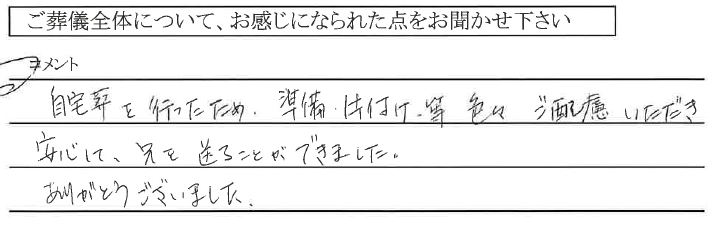 ご葬儀全体について、お感じになられた点をお聞かせ下さい
コメント
自宅葬を行ったため、準備・片付け、等 色々 ご配慮いただき
安心して、兄を送ることができました。
ありがとうございました。